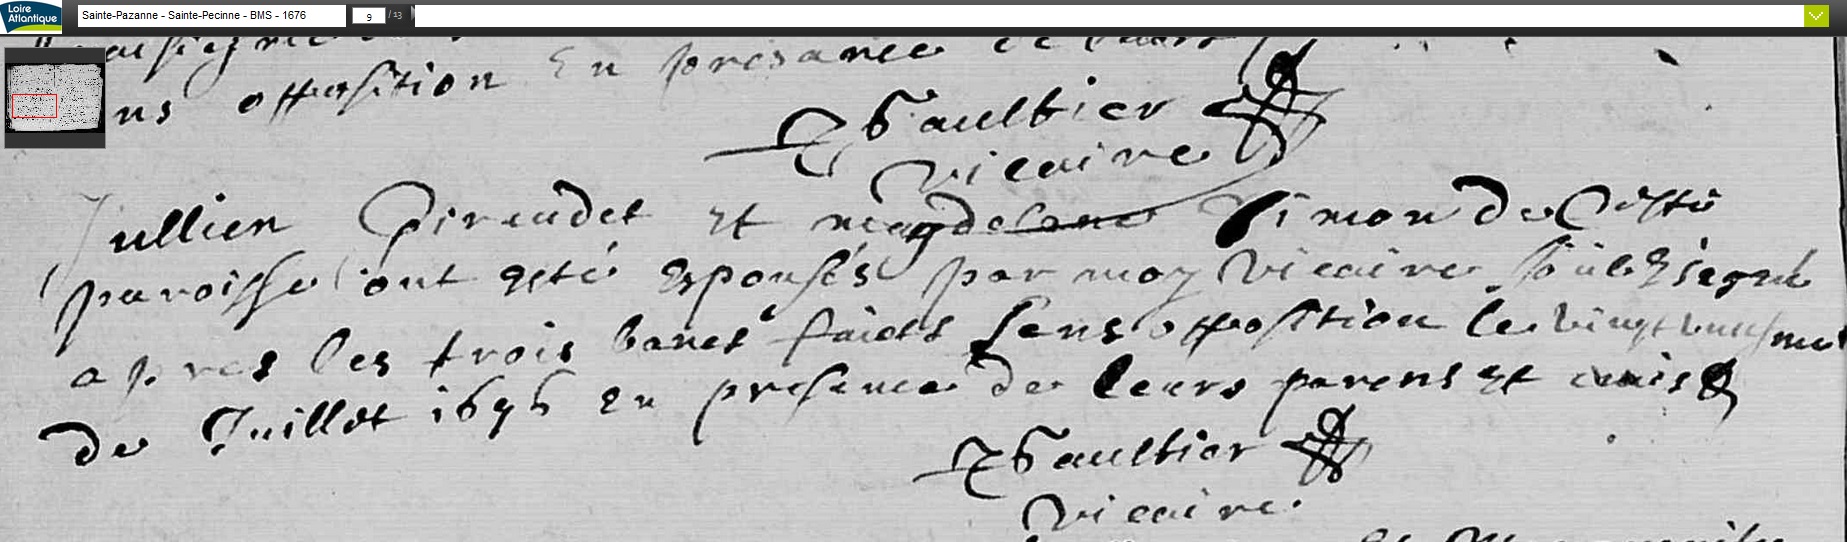 Loire
Atlantique
Sainte-Pazanne - Sainte-Pecinne - BMS - 1676
9 / 13
ns opposition En presance de leurs
Gaultier
vicaire
Jullien Giraudet et magdelene Simon de Cette
paroisse ont esté Espousés par moy vicaire soubsigné
apres les trois bancs faicts sans opposition le vingt
de Juillet 1676 en presence de leurs parens et amis
Gaultier
vicaire